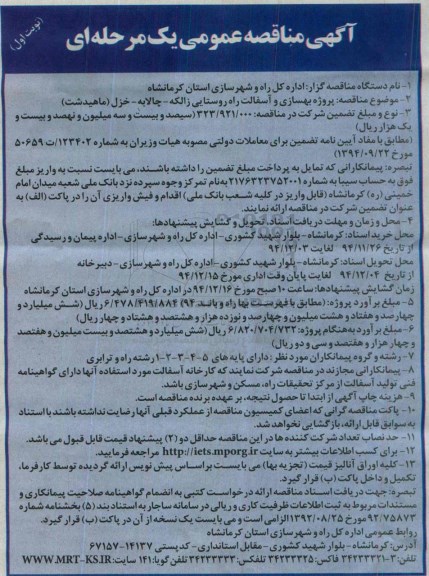 آگهی مناقصه عمومی یک مرحله‌ای
(نوبت اول)
۱- نام دستگاه مناقصه گزار: اداره کل راه و شهرسازی استان کرمانشاه
۲- موضوع مناقصه: پروژه بهسازی و آسفالت راه روستایی زالکه- چالابه- خزل (ماهیدشت)
۳- نوع و مبلغ تضمین شرکت در مناقصه: ۳۲۳/۹۲۱/۰۰۰ (سیصد و بیست و سه میلیون و نهصد و بیست و
یک هزار ریال)
(مطابق با مفاد آیین نامه تضمین برای معاملات دولتی مصوبه هیات وزیران به شماره ۱۲۳۴۰۲/ت ۵۰۶۵۹
مورخ ۱۳۹۴/۰۹/۲۲)
تبصره: پیمانکارانی که تمایل به پرداخت مبلغ تضمین را داشته باشند، می بایست نسبت به واریز مبلغ
فوق به حساب سیبا به شماره ۲۱۷۶۳۲۳۷۵۲۰۰۱ به نام تمرکز وجوه سپرده نزد بانک ملی شعبه میدان امام
خمینی (ره) کرمانشاه (قابل واریز در کلیه شعب بانک ملی) اقدام و فیش واریزی آن را در پاکت (الف) به
عنوان تضمین شرکت در مناقصه ارائه نمایند.
۴- محل و زمان و مهلت دریافت اسناد، تحویل و گشایش پیشنهادها:
محل خرید اسناد: کرمانشاه- بلوار شهید کشوری- اداره کل راه و شهرسازی- اداره پیمان و رسیدگی
از تاریخ ۹۴/۱۱/۲۶ لغایت ۹۴/۱۲/۰۳
محل تحویل اسناد: کرمانشاه- بلوار شهید کشوری- اداره کل راه و شهرسازی- دبیرخانه
از تاریخ ۹۴/۱۲/۰۴ لغایت پایان وقت اداری مورخ ۹۴/۱۲/۱۵
زمان گشایش پیشنهادها: ساعت ۱۰ صبح مورخ ۹۴/۱۲/۱۶ در اداره کل راه و شهرسازی استان کرمانشاه
۵- مبلغ برآورد پروژه: (مطابق با فهرست بها راه و باند ۹۴) ۶/۴۷۸/۴۱۹/۸۸۴ ریال (شش میلیارد و
چهارصد و هفتاد و هشت میلیون و چهارصد و نوزده هزار و هشتصد و هشتاد و چهار ریال)
۶- مبلغ برآورد به هنگام پروژه: ۶/۸۲۰/۷۰۴/۷۳۲ ریال (شش میلیارد و هشتصد و بیست میلیون و هفتصد
و چهار هزار و هفتصد و سی و دو ریال)
۷- رشته و گروه پیمانکاران مورد نظر: دارای پایه های ۵-۴-۳-۲-۱ رشته راه و ترابری
۸- پیمانکارانی مجازند در مناقصه شرکت نمایند که کارخانه آسفالت مورد استفاده آنها دارای گواهینامه
فنی تولید آسفالت از مرکز تحقیقات راه، مسکن و شهرسازی باشد.
۹- هزینه چاپ آگهی از ابتدا تا حصول نتیجه، بر عهده برنده مناقصه است.
۱۰- پاکت مناقصه گرانی که اعضای کمیسیون مناقصه از عملکرد قبلی آنها رضایت نداشته باشند با استناد
به سوابق قابل ارائه، بازگشایی نخواهد شد.
۱۱- حد نصاب تعداد شرکت کننده ها در این مناقصه حداقل دو (۲) پیشنهاد قیمت قابل قبول می باشد.
۱۲- برای کسب اطلاعات بیشتر به سایت http://iets.mporg.ir مراجعه فرمایید.
۱۳- کلیه اوراق آنالیز قیمت (تجزیه بها) می بایست بر اساس پیش نویس ارائه گردیده توسط کارفرما،
تکمیل و داخل پاکت (ب) قرار گیرد.
تبصره: جهت دریافت اسناد مناقصه ارائه درخواست کتبی به انضمام گواهینامه صلاحیت پیمانکاری و
مستندات مربوط به ثبت اطلاعات ظرفیت کاری و ریالی در سامانه ساجار به استناد بند (۵) بخشنامه شماره
۹۲/۷۵۸۷۳ مورخ ۱۳۹۲/۰۸/۲۵ الزامی است و می بایست یک نسخه از آن در پاکت (ب) قرار گیرد.
روابط عمومی اداره کل راه و شهرسازی استان کرمانشاه
آدرس: کرمانشاه- بلوار شهید کشوری- مقابل استانداری- کدپستی ۱۴۱۳۷-۶۷۱۵۷
تلفن: ۳-۳۴۲۳۳۲۲۱ فاکس: ۳۴۲۳۳۲۲۵ تلفکس: ۳۴۲۳۳۳۳۳ تلفن گویا: ۱۴۱ سایت: WWW.MRT-KS.IR